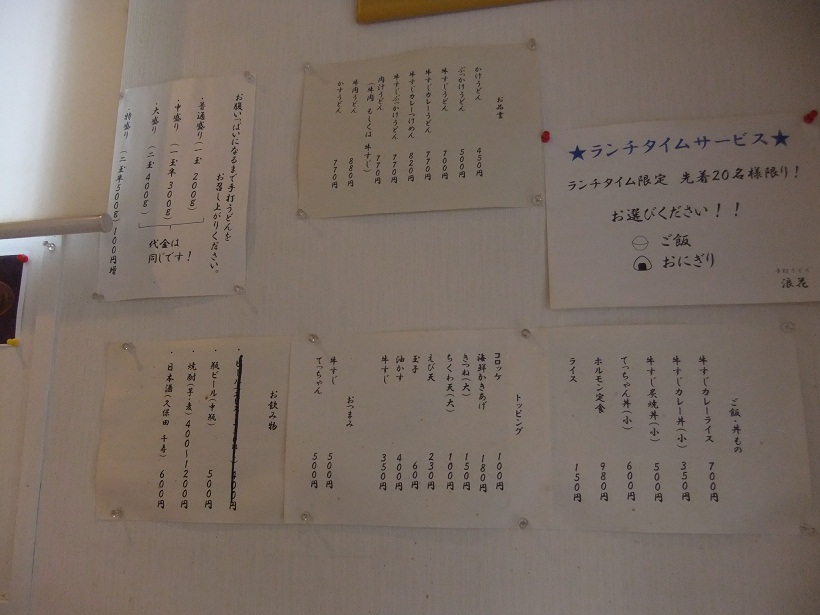 お品書
かけうどん 450円
ぶっかけうどん 500円
牛すじうどん 700円
牛すじカレーうどん 770円
牛すじカレーつけめん 820円
牛すじぶっかけうどん 770円
肉汁うどん 770円
(牛肉 もしくは 牛すじ)
牛肉うどん 880円
かすうどん 770円
お腹いっぱいになるまで手打うどんを
お召し上がりください。
・普通盛り(一玉 200g)
・中盛り (一玉半 300g)
・大盛り (二玉 400g)
代金は
同じです!
・特盛り (二玉半500g)100円増
★ランチタイムサービス★
ランチタイム限定 先着20名様限り!
お選びください!!
ご飯
おにぎり
手打うどん
浪花
ご飯・丼もの
牛すじカレーライス 700円
牛すじカレー丼(小) 350円
牛すじ炭焼丼(小) 500円
てっちゃん丼(小) 600円
ホルモン定食 980円
ライス 150円
トッピング
コロッケ 100円
海鮮かきあげ 180円
きつね(大) 150円
ちくわ天(大) 100円
えび天 230円
玉子 60円
油かす 400円
牛すじ 350円
おつまみ
牛すじ 500円
てっちゃん 500円
お飲み物
・瓶ビール(中瓶) 500円
・焼酎(芋・麦) 400〜1200円
・日本酒(久保田 千寿) 600円